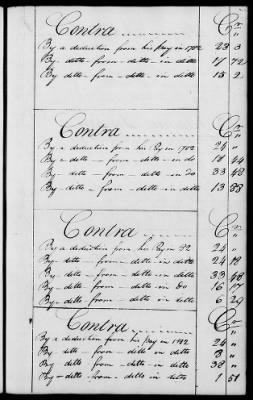 Contra Cr
By a deduction from his Pay in 1782 23 3
By - ditto - from - ditto - in ditto 17 72
By ditto - from - ditto - in ditto 15 2
Contra Cr
By a deduction from his Pay in 1782 24 "
By a ditto - from - ditto - in do 18 44
By - ditto - from - ditto - in Do 33 48
By - ditto - from - ditto - in ditto 13 88
Contra Cr
By a deduction from his Pay in 82 24 "
By - ditto - from - ditto - in ditto 24 18
By - ditto - from - ditto in ditto 33 48
By - ditto - from - ditto - in Do 16 17
By - ditto - from - ditto - in ditto 6 29
Contra Cr
By a deduction from his Pay in 1782 24 "
By - ditto - from - ditto in ditto 3 "
By - ditto - from - ditto in ditto 38 "
By - ditto - from - ditto in ditto 1 51